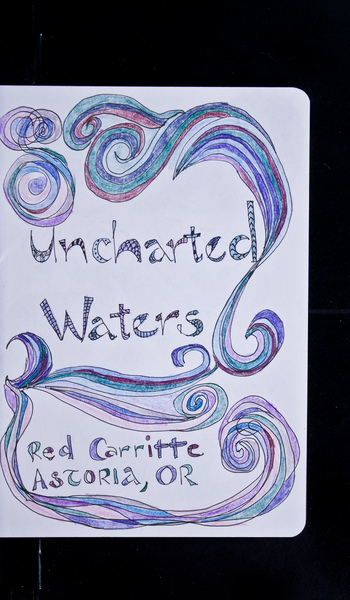 Uncharted
Waters
Red Carritte
ASTORIA, OR